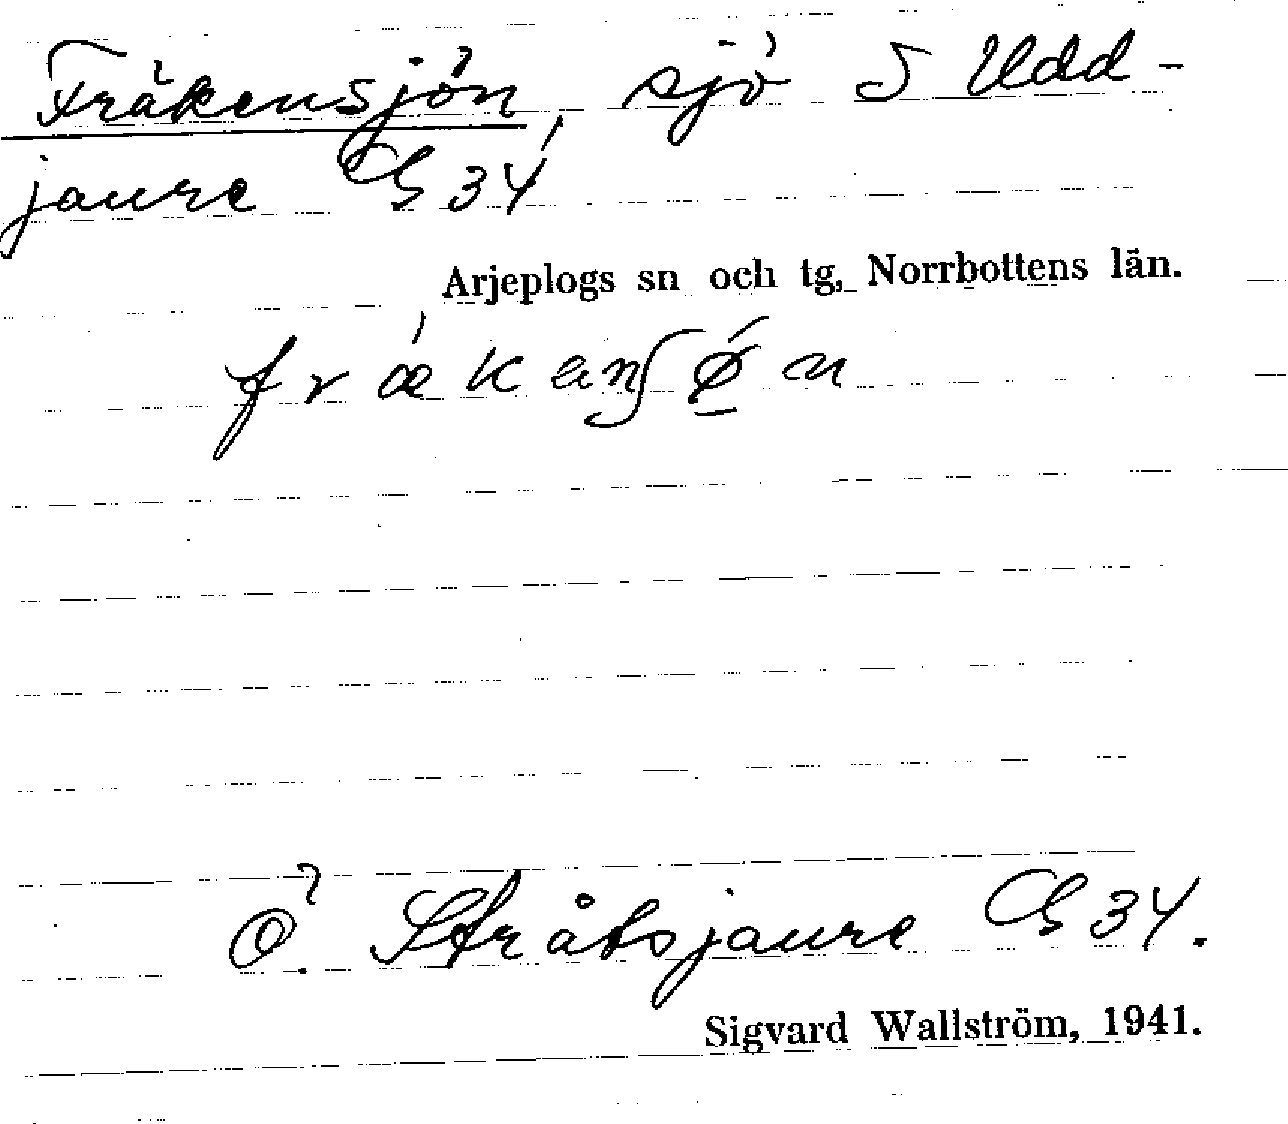 Fräkensjön, sjö S Udd-
jaure G34
Arjeplogs sn och tg, Norrbottens län.
Ö. Stråtsjaure G34.
Sigvard Wallström, 1941.